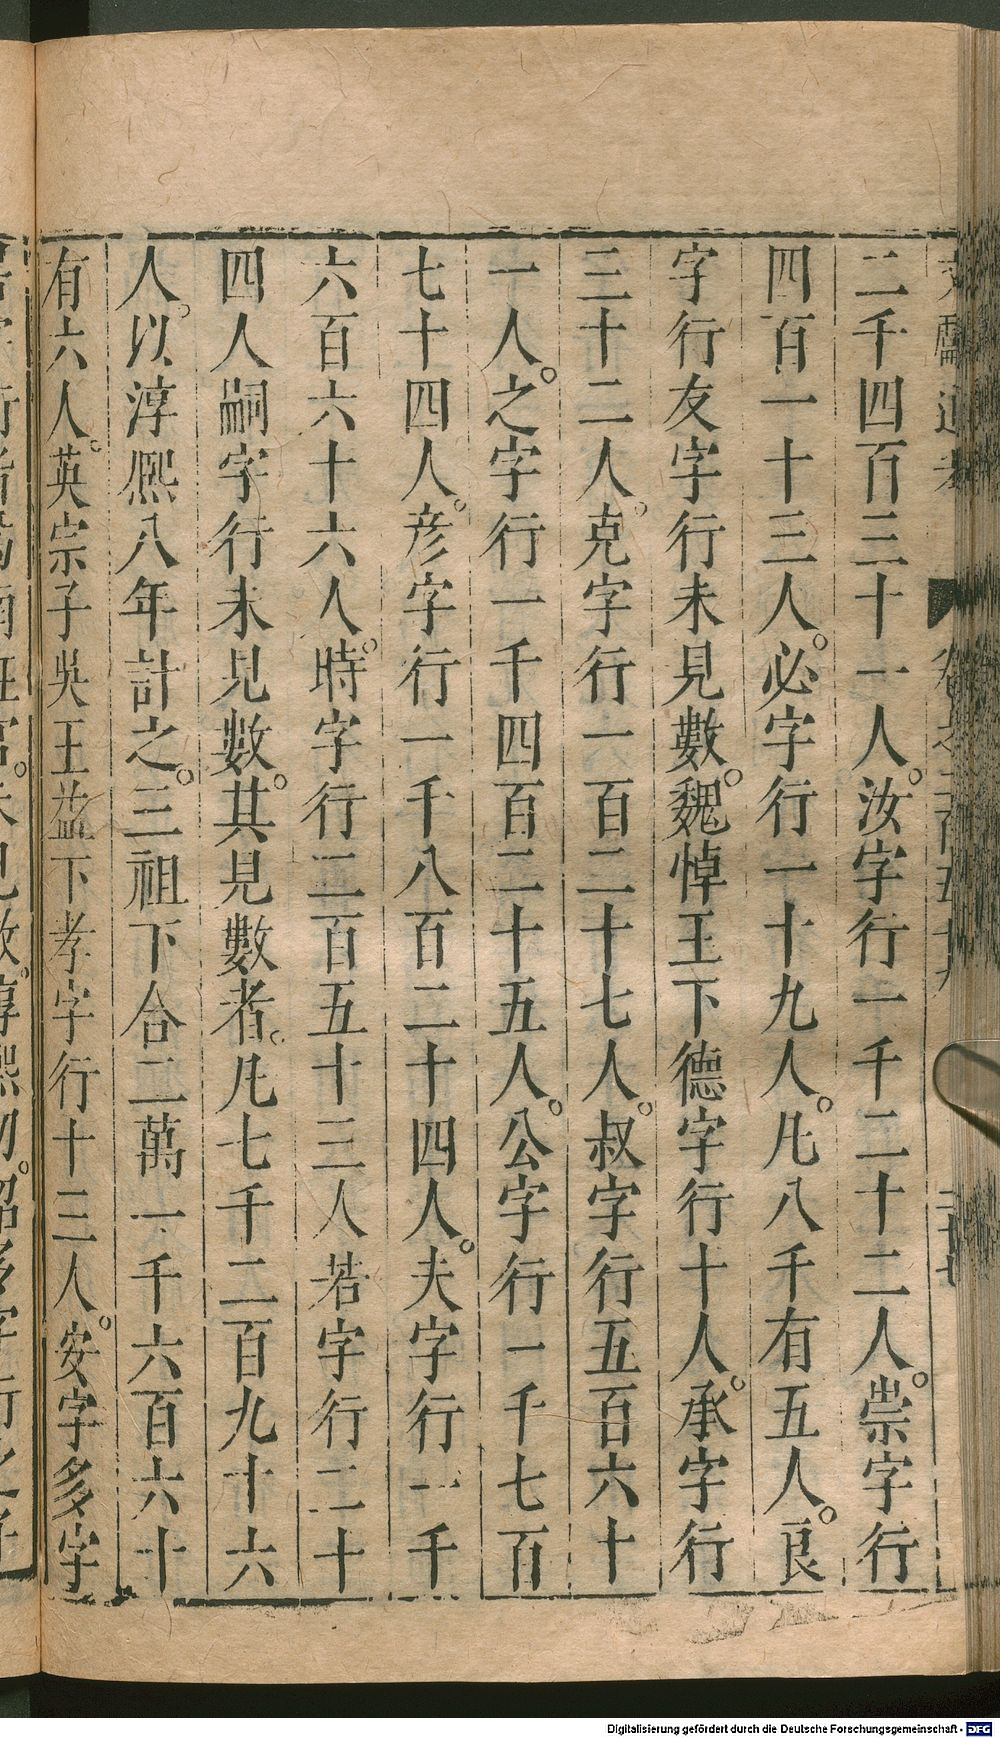 二千四百三十一人。汝字行一千二十二人。崇字行
四百一十三人。必字行一十九人。凡八千有五人。良
字行友字行未見數。魏悼王下德字行十人。承字行
三十二人。克字行一百二十七人。叔字行五百六十
一人。之字行一千四百二十五人。公字行一千七百
七十四人。彦字行一千八百二十四人。夫字行一千
六百六十六人。時字行二百五十三人若字行二十
四人嗣字行未見數。其見數者。凡七千二百九十六
人。以淳熈八年計之。三祖下合二萬一千六百六十
有六人。英宗子吳王益下孝字行十三人。安字多字
Digitalisierung gefördert durch die Deutsche Forschungsgemeinschaft - DFG